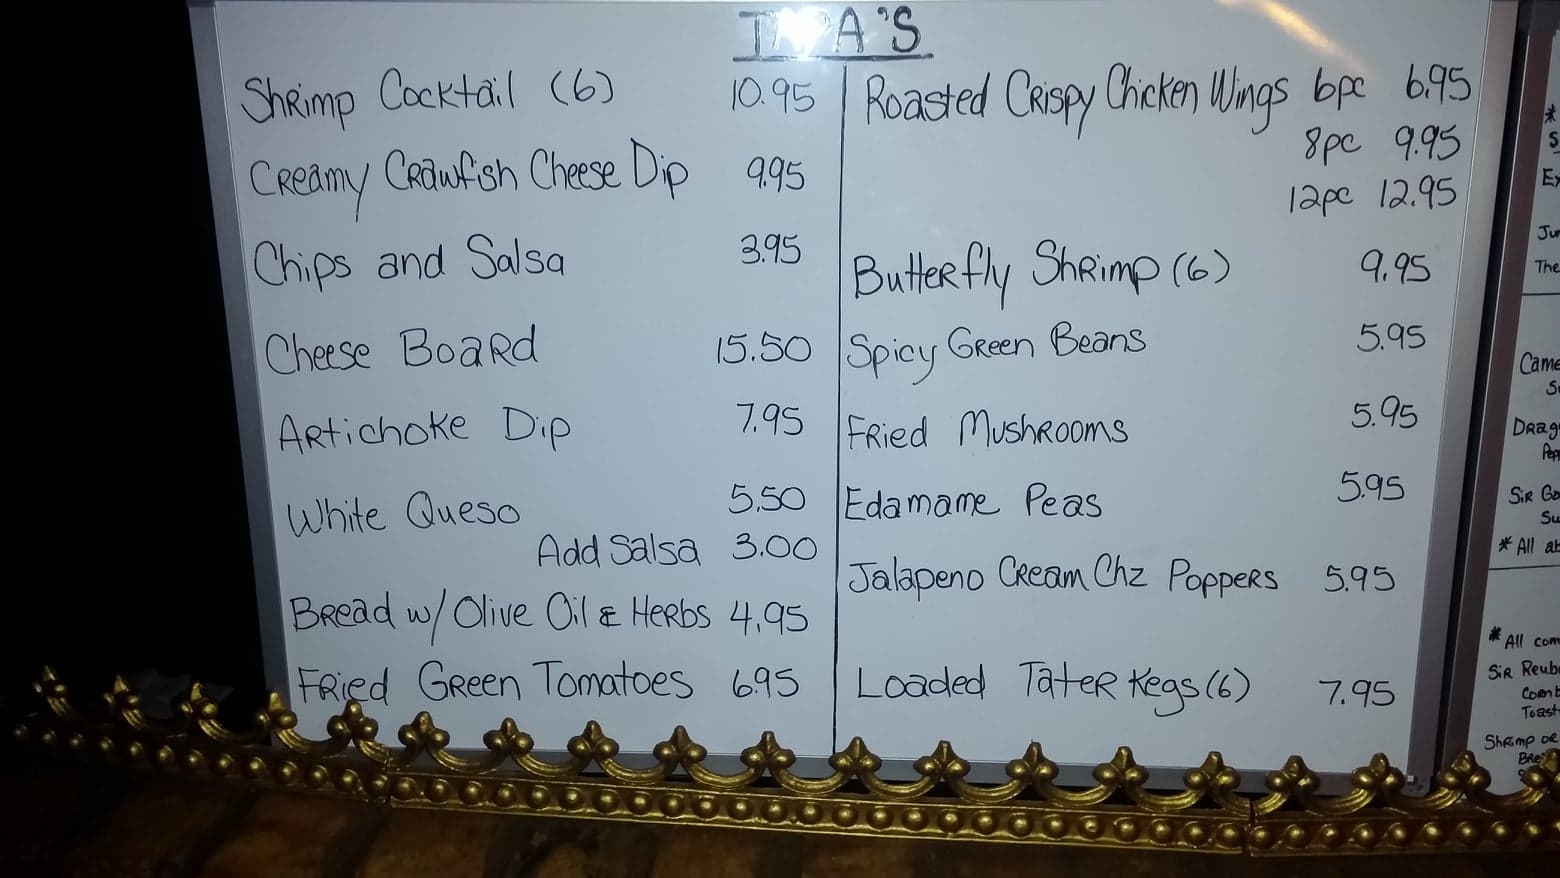 TAPA'S
Shrimp Cocktail (6) 10.95
Creamy Crawfish Cheese Dip 9.95
Chips and Salsa 3.95
Cheese Board 15.50
Artichoke Dip 7.95
White Queso 5.50
Add Salsa 3.00
Bread w/ Olive Oil & Herbs 4.95
Fried Green Tomatoes 6.95
Roasted Crispy Chicken Wings 6pc 6.95
8pc 9.95
12pc 12.95
Butterfly Shrimp (6) 9.95
Spicy Green Beans 5.95
Fried Mushrooms 5.95
Edamame Peas 5.95
Jalapeno Cream Chz Poppers 5.95
Loaded Tater Kegs (6) 7.95
*
The
* All
* All
Sir
Shrimp or